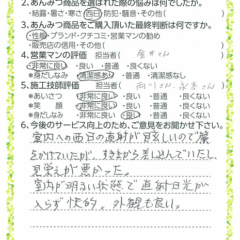 2.あんみつ商品を選ばれた際の悩みは何でしたか。
・結露・暑さ・寒さ・西日・防犯・騒音・その他( )
3.あんみつ商品をご購入頂いた最終判断は何ですか。
・性能・ブランド・クチコミ・営業マンの勧め
・販売店の信用・その他( )
4.営業マンの評価 担当者(
・非常に良い ・良い ・普通 ・良くない
*身だしなみ ・清潔感あり ・普通 ・清潔感なし
5.施工技師評価 担当者(
*あいさつ ・非常に良い ・良い ・普通 ・良くない
*笑顔 ・非常に良い ・良い ・普通 ・良くない
*身だしなみ ・非常に良い ・良い ・普通 ・良くない
6.今後のサービス向上のため、ご意見をお聞かせ下さい。
室内への西日の直射が眩しいので簾
をかけていたが、すきまから差し込んでいたし、
見栄えが悪かった。
室内が明るい状態で直射日光が
入らず快的。外観も良い。